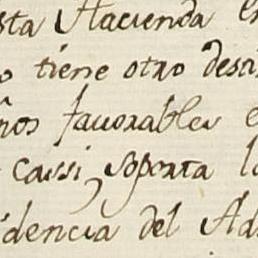 sta Hacienda e
o tiene otro desti
ños favorables e
cassi, soporta l
idencia del Ad